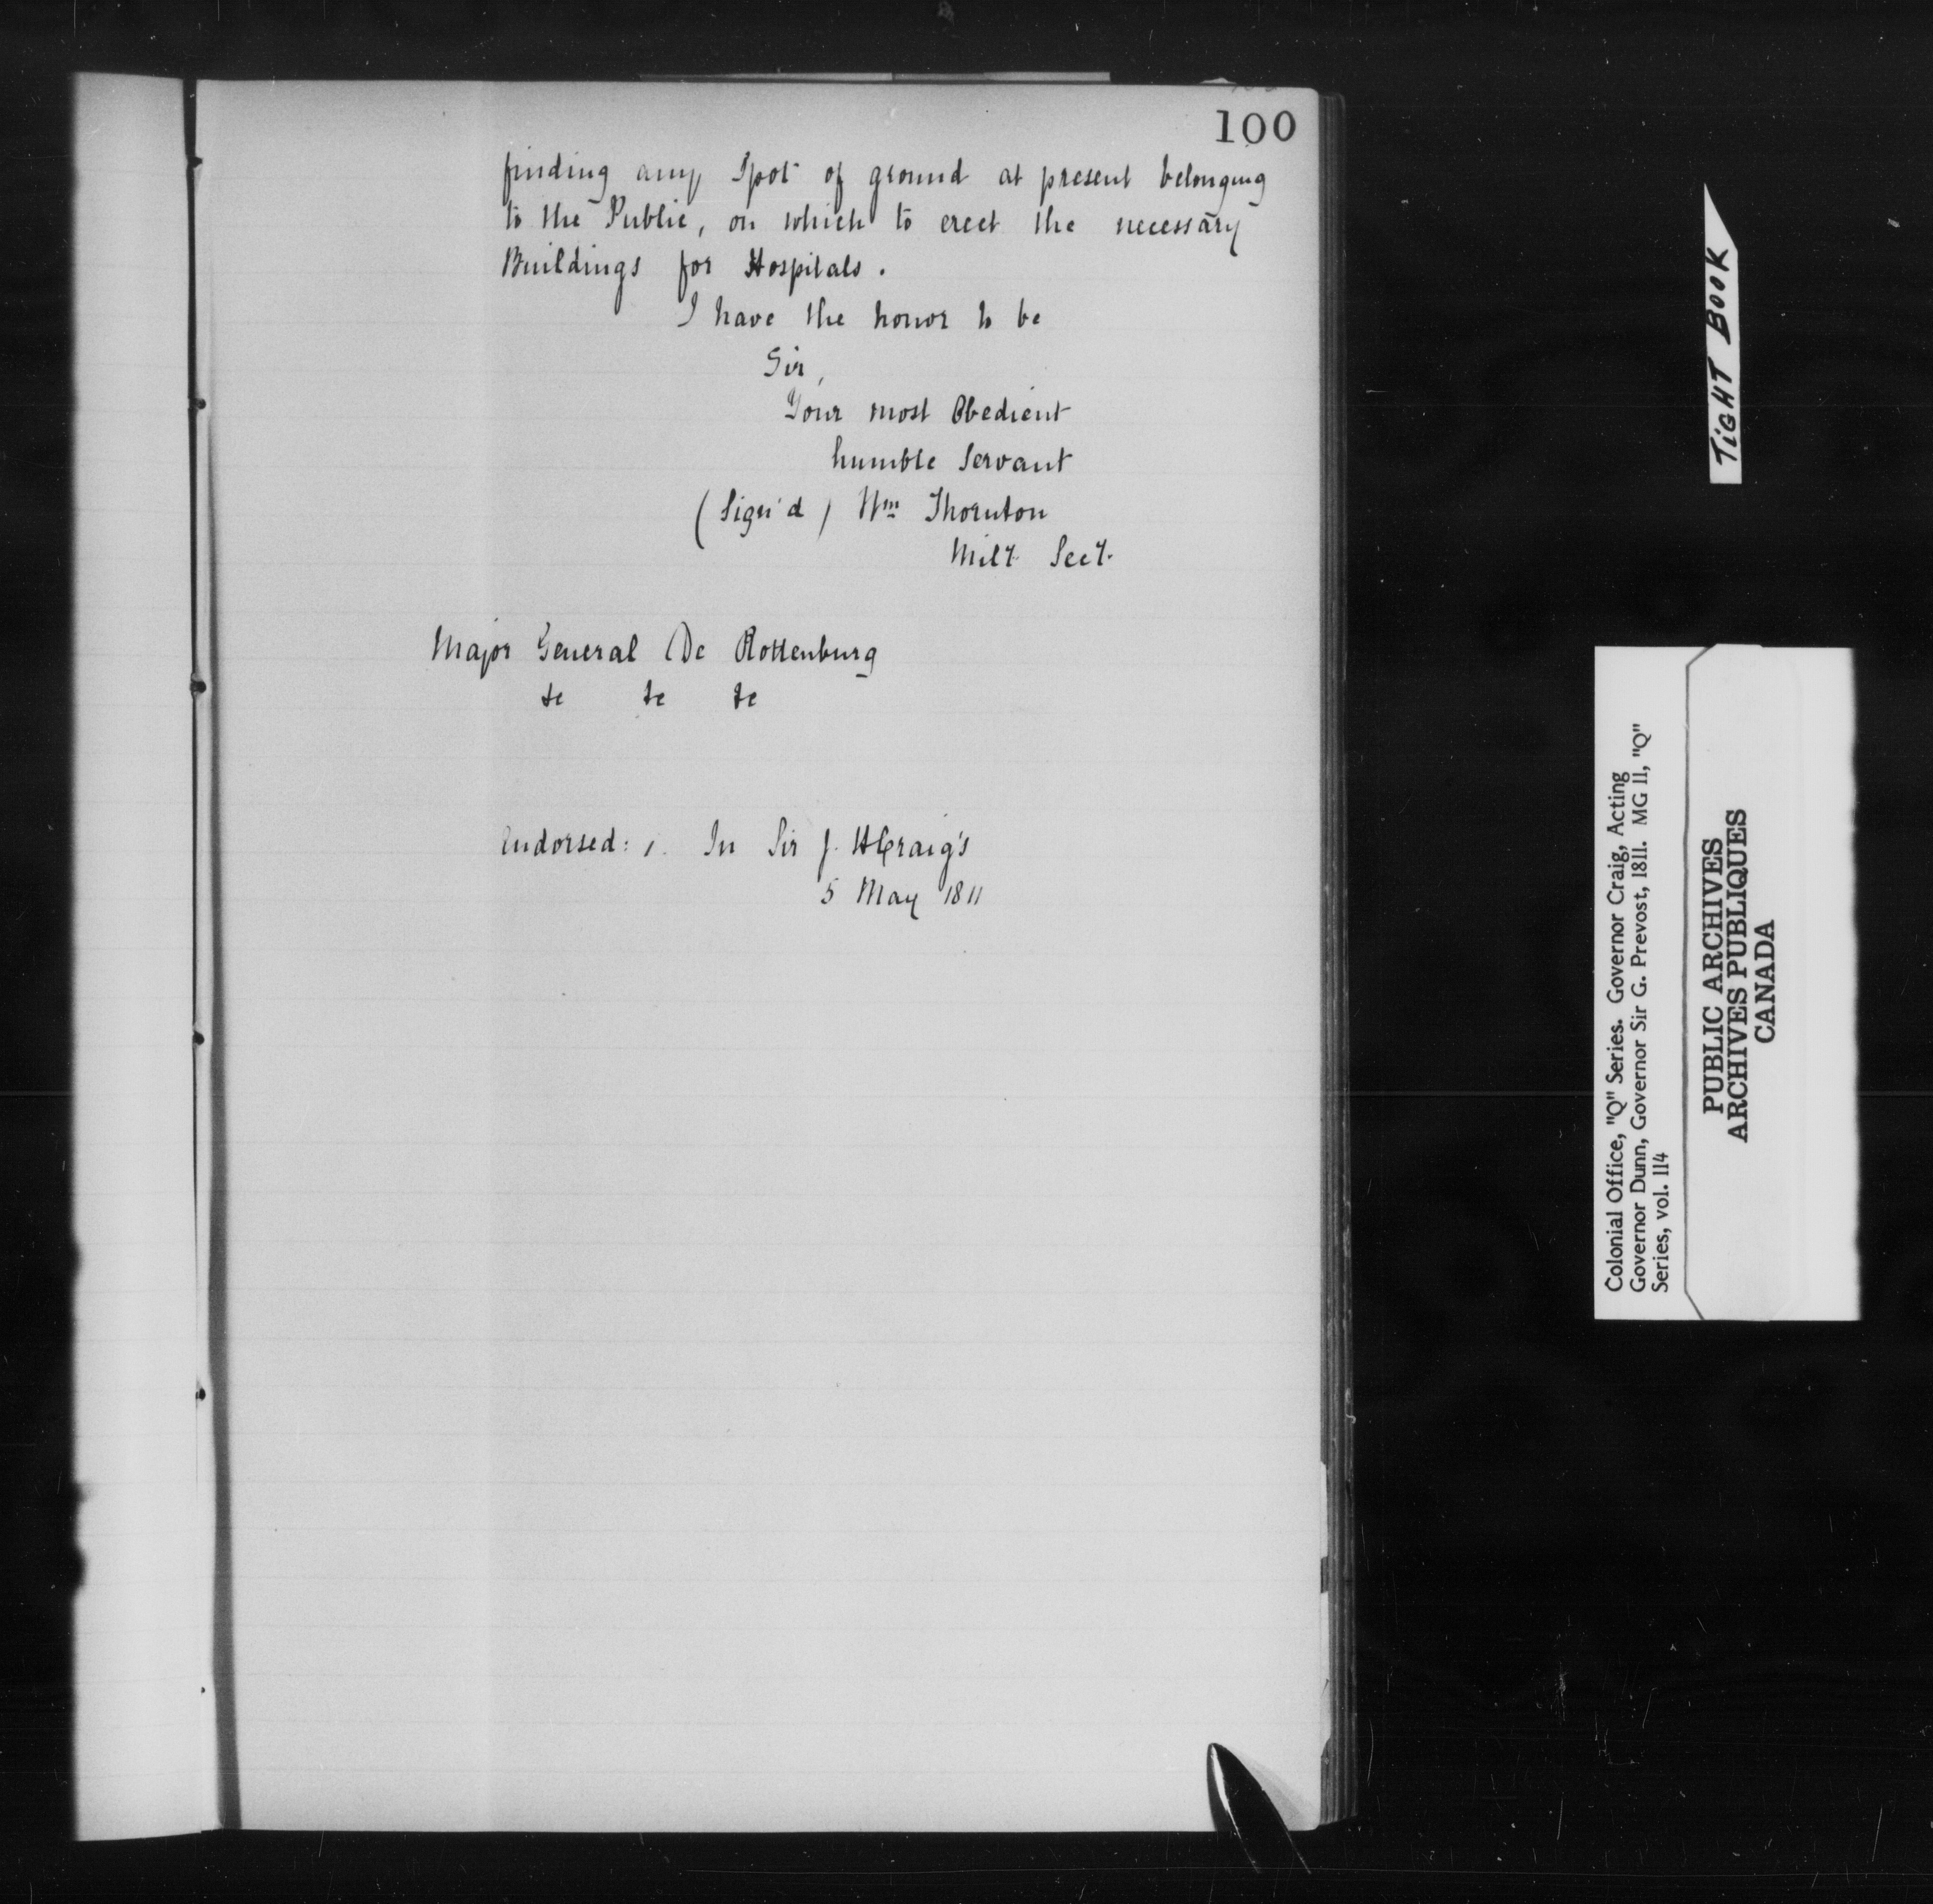 100
finding any Spot of ground at present belonging
to the Public, on which to erect the necessary
Buildings for Hospitals.
I have the honor to be
Sir,
Your most Obedient
humble Servant
(Sign'd) Wm Thornton
Mily. Secy.
Major General De Rottenburg
&c &c &c
Endorsed: 1. In Sir J. H Craig's
5 May 1811
TIGHT BOOK
Colonial Office, "Q" Series. Governor Craig, Acting
Governor Dunn, Governor Sir G. Prevost, 1811. MG 11, "Q"
Series, vol. 114
PUBLIC ARCHIVES
ARCHIVES PUBLIQUES
CANADA